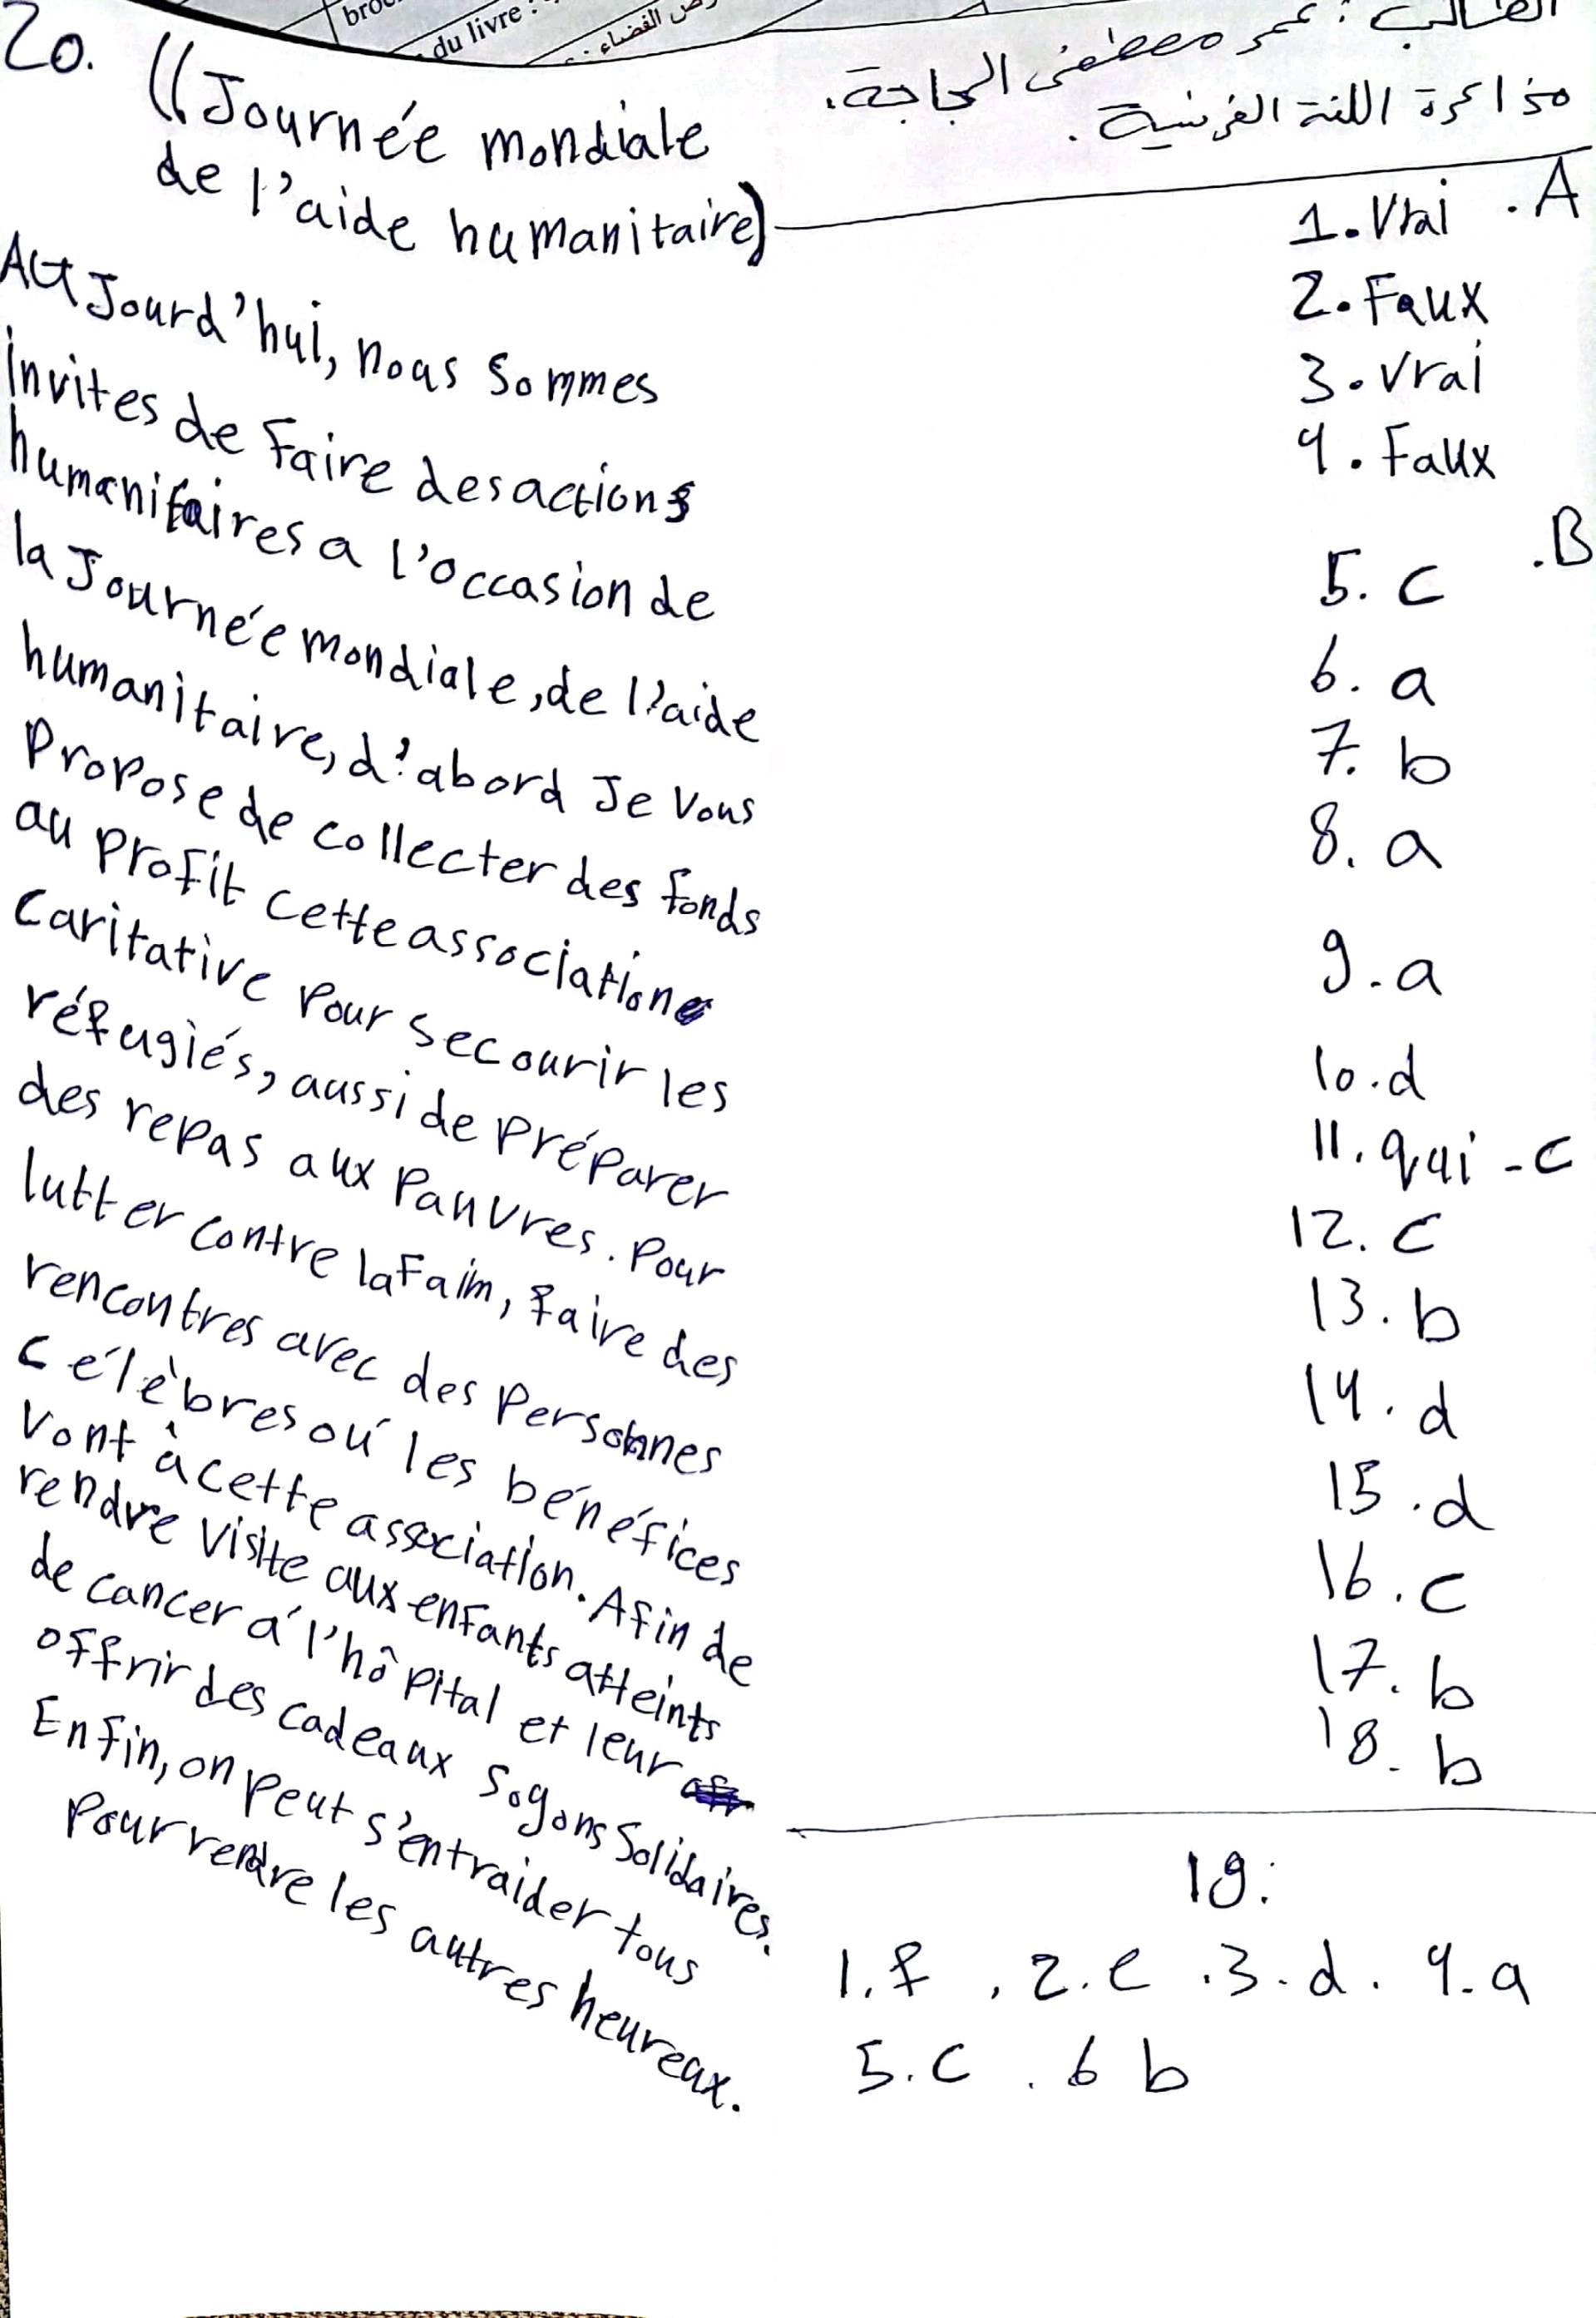 bro
du livre :
الفضاء :
الطالب : عمر مصطفى الجاجة.
مذاكرة اللغة الفرنسية.
A.
1. Vrai
2. Faux
3. Vrai
4. Faux
B.
5. c
6. a
7. b
8. a
9. a
10. d
11. qui - c
12. c
13. b
14. d
15. d
16. c
17. b
18. b
19:
1. f , 2. e . 3. d . 4. a
5. c . 6 b
20. ((Journée mondiale
de l'aide humanitaire)
Au Jourd'hui, nous sommes
invites de Faire des actions
humanitaires a l'occasion de
la Journée mondiale, de l'aide
humanitaire, d'abord Je vous
Propose de collecter des fonds
au profit cette association
caritative pour secourir les
réfugiés, aussi de préparer
des repas aux pauvres. Pour
lutter contre la Faim, faire des
rencontres avec des personnes
célèbres oú les bénéfices
vont à cette association. Afin de
rendre visite aux enfants atteints
de cancer á l'hôpital et leur
offrir des cadeaux sogons Solidaires.
Enfin, on peut s'entraider tous
Pour rendre les autres heureux.